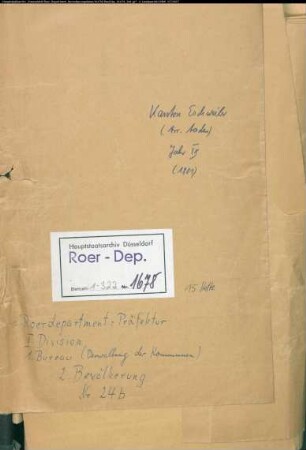 Kanton Eschweiler
(Arr. Aachen)
Jahr IX
(1801)
Hauptstaatsarchiv Düsseldorf
Roer - Dep.
1-322 Nr. 1678
15 Hefte
Roerdepartement: Präfektur
I Division
1. Bureau (Verwaltung der Kommunen)
2. Bevölkerung
Nr 24b